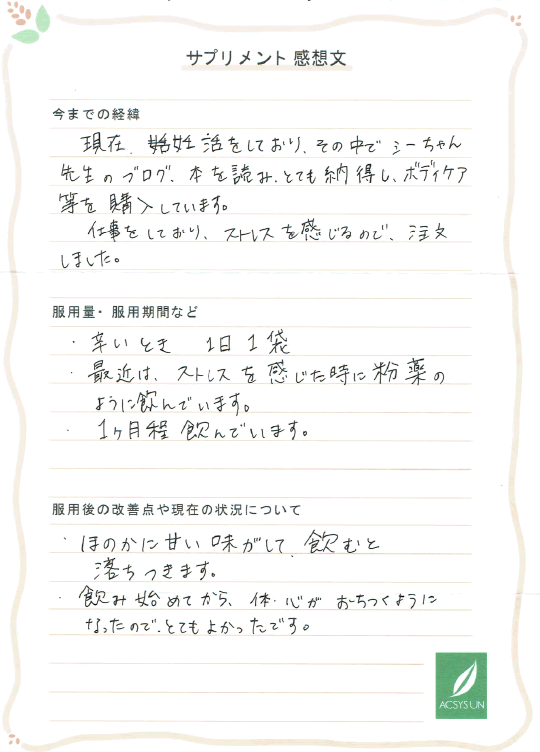 サプリメント 感想文
今までの経緯
現在、妊活をしており、その中でシーちゃん
先生のブログ、本を読み、とても納得し、ボディケア
等を購入しています。
仕事をしており、ストレスを感じるので、注文
しました。
服用量・服用期間など
・辛いとき 1日1袋
・最近は、ストレスを感じた時に粉薬の
ように飲んでいます。
・1ヶ月程飲んでいます。
服用後の改善点や現在の状況について
・ほのかに甘い味がして、飲むと
落ちつきます。
・飲み始めてから、体・心がおちつくように
なったので、とてもよかったです。
ACSYSUN